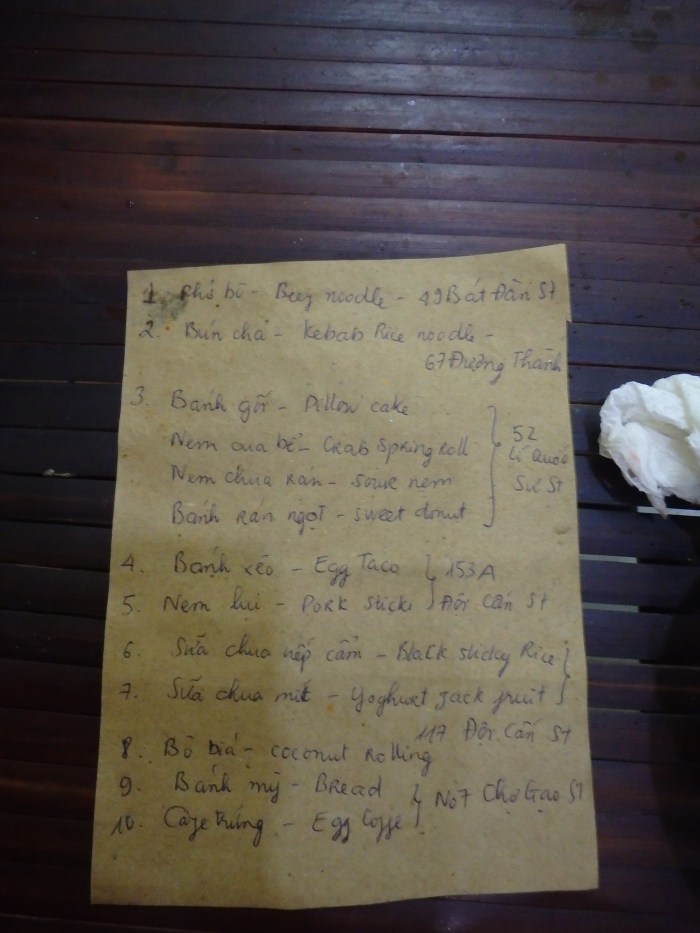 1. Phở bò - Beef noodle - 49 Bát Đàn St
2. Bún chả - Kebab Rice noodle -
67 Đường Thành
3. Bánh gối - Pillow cake
Nem cua bể - Crab Spring roll
Nem chua rán - Sour nem
Bánh rán ngọt - sweet donut
52
Lí Quốc
Sư St
4. Bánh xèo - Egg Taco
153A
5. Nem lụi - Pork sticks
Đội Cấn St
6. Sữa chua nếp cẩm - Black sticky Rice
7. Sữa chua mít - Yoghurt jack fruit
117 Đội Cấn St
8. Bò bía - coconut Rolling
9. Bánh mỳ - Bread
No7 Chợ Gạo St
10. Cafe trứng - Egg Coffe